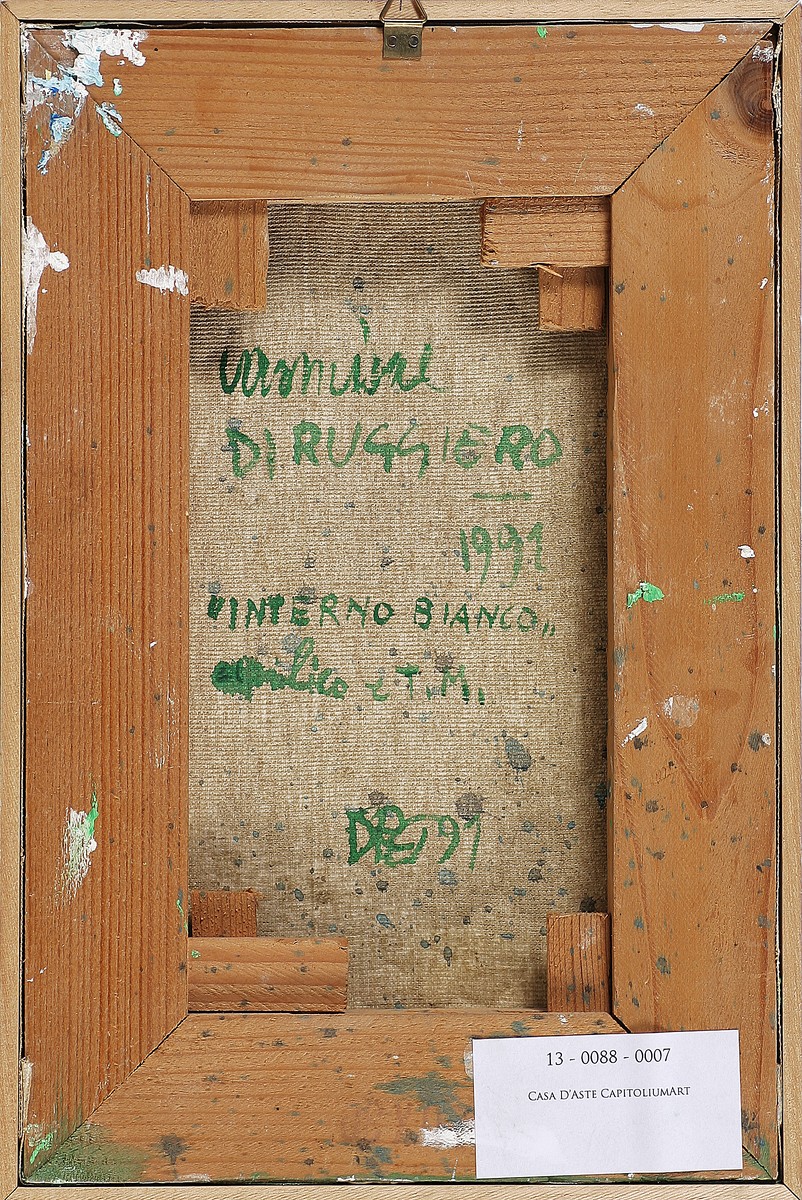 DI RUGGIERO
1991
"INTERNO BIANCO„
acrilico e T.M.
91
13 - 0088 - 0007
CASA D'ASTE CAPITOLIUMART